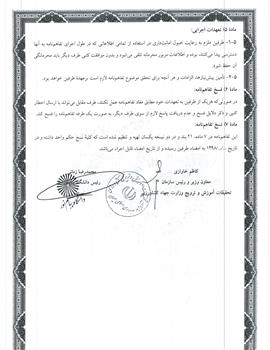 ماده ۵) تعهدات اجرایی:
۱-۵- طرفین ملزم به رعایت اصول امانت‌داری در استفاده از تمامی اطلاعاتی که در طول اجرای تفاهم‌نامه به آنها
دسترسی پیدا می‌کنند، بوده و اطلاعات مزبور محرمانه تلقی می‌شود و بدون موافقت کتبی طرف دیگر باید محرمانگی
آن حفظ شود.
۲-۵- تأمین پیش‌نیازها، الزامات و هر آنچه برای تحقق موضوع تفاهم‌نامه لازم است برعهدۀ طرفین خواهد بود.
ماده ۶) فسخ تفاهم‌نامه:
در صورتی‌که هریک از طرفین به تعهدات خود مطابق مفاد تفاهم‌نامه عمل نکنند، طرف مقابل می‌تواند با ارسال اخطار
کتبی و ذکر دلایل فسخ و عدم دریافت پاسخ لازم از سوی طرف دیگر، به صورت یک طرفه تفاهم‌نامه را فسخ کند.
ماده ۷) نسخ تفاهم‌نامه:
این تفاهم‌نامه در ۷ ماده، ۲۱ بند و در دو نسخه یکسان تهیه و تنظیم شده است که کلیۀ نسخ حکم واحد داشته و در
تاریخ ۱۳۹۸/ به امضاء طرفین رسیده و از تاریخ امضاء قابل اجراء می‌باشد.
کاظم خاوازی
معاون وزیر و رئیس سازمان
تحقیقات آموزش و ترویج وزارت جهاد کشاورزی
محمدرضا زمانی
رئیس دانشگاه